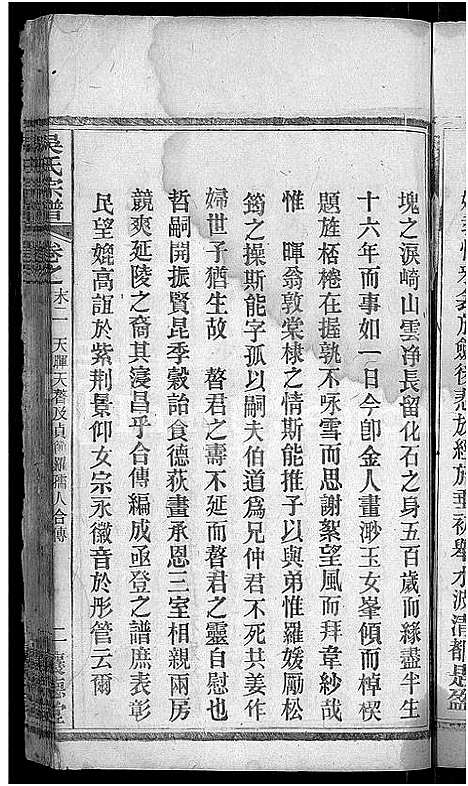 塊之淚崎山雲净長留化石之身五百歲而緣盡半生
十六年而事如一日今卽金人畫渺玉女峯傾而棹楔
題旌桮棬在握孰不咏雪而思謝絮望風而拜韋紗哉
惟　暉翁敦棠棣之情斯能推子以與弟惟羅媛厲松
筠之操斯能字孤以嗣夫伯道爲兄仲君不死共姜作
婦世子猶生故　瞀君之壽不延而瞀君之靈自慰也
哲嗣開振賢昆季穀詒食德荻畫承恩三室相親兩房
競爽延陵之裔其寖昌乎合傳編成亟登之譜庶表彰
民望媲高誼於紫荆景仰女宗永徽音於彤管云爾
吳氏宗譜
卷之末二　天暉天瞀及貞節羅孺人合傳